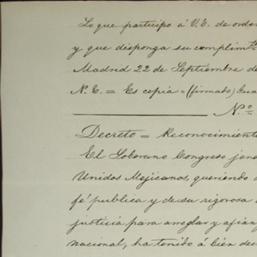 Lo que participo á V.E. de orden
y que disponga su cumplimto
Madrid 22 de Septiembre de
N.E. = Es copia = (firmado)
N.o
Decreto = Reconocimiento
El Soberano Congreso
Unidos Mejicanos, queriendo
fé publica y de su rigorosa
justicia para arreglar y afian
nacional, ha tenido á bien dec